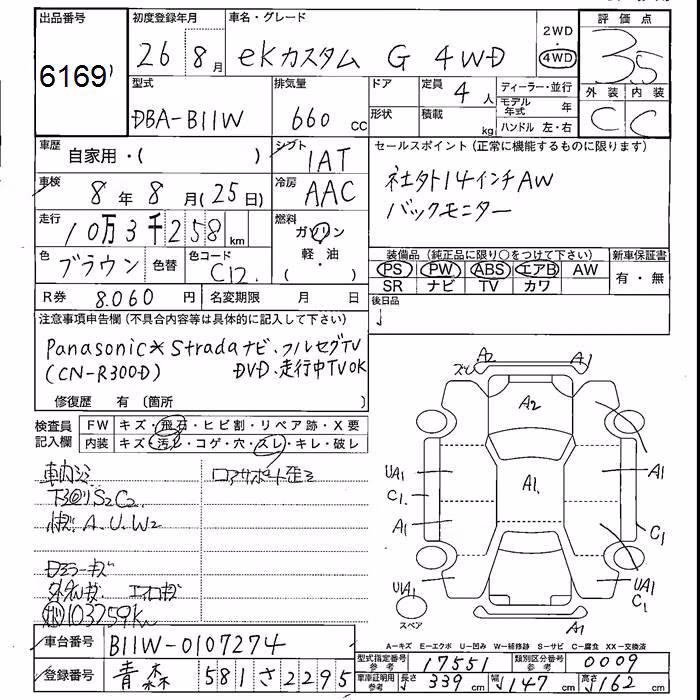 出品番号 6169
初度登録年月 26 8月
車名・グレード eKカスタム G 4WD
2WD 4WD
評価点 3.5
外装 内装
C C
型式 DBA-B11W
排気量 660 cc
ドア 形状
定員 4人
積載 kg
ディーラー・並行
モデル年式 年
ハンドル 左・右
車歴 自家用・( )
シフト IAT
セールスポイント(正常に機能するものに限ります)
社外14インチAW
バックモニター
車検 8年8月(25日)
冷房 AAC
走行 10万3千258km
燃料 ガソリン
軽・油
( )
色 ブラウン 色替
色コード C12
装備品(純正品に限り○をつけて下さい)
PS PW ABS エアB AW
SR ナビ TV カワ
新車保証書
有・無
R券 8.060円
名変期限 月 日
後日品
注意事項申告欄(不具合内容等は具体的に記入して下さい)
Panasonic×Stradaナビ・フルセグTV
(CN-R300D) DVD・走行中TVOK
修復歴 有〔箇所 〕
検査員記入欄
FW キズ・飛石・ヒビ割・リペア跡・X要
内装 キズ・汚レ・コゲ・穴・スレ・キレ・破レ
車内 ロアサポート歪ミ
下回リS2C2
A.U.W2
Dミラーキズ
エアロキズ
103259km
A2 A1
ズレ
A2
UA1 A1 A1
C1
A1 C1
UA1 UA1
C1
スペア
A1
A-キズ E-エクボ U-凹み W-補修跡 S-サビ C-腐食 XX-交換済
車台番号 B11W-0107274
登録番号 青森 581 さ 2295
型式指定番号 参考 17551
類別区分番号 参考 0009
車庫証明用 参考 長さ 339cm 幅 147cm 高さ 162cm